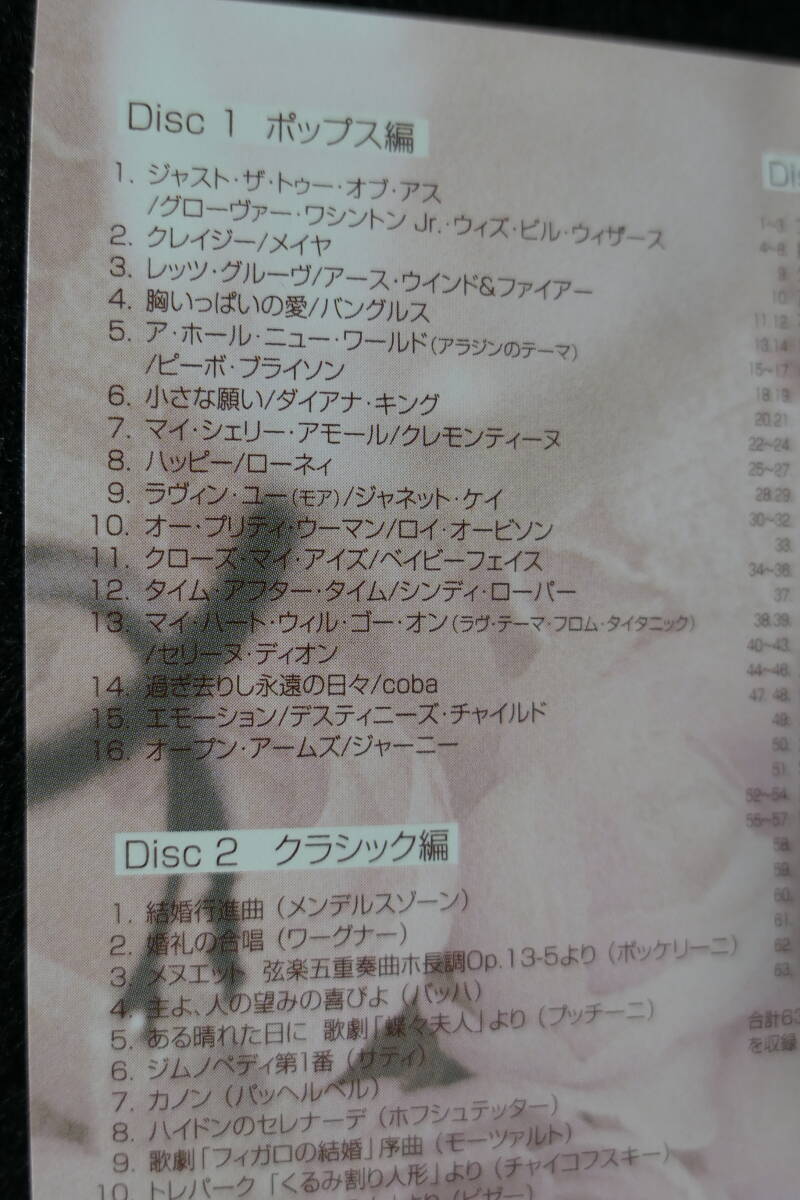 Disc 1 ポップス編
1. ジャスト・ザ・トゥー・オブ・アス
/グローヴァー・ワシントン Jr.・ウィズ・ビル・ウィザース
2. クレイジー/メイヤ
3. レッツ・グルーヴ/アース・ウインド&ファイアー
4. 胸いっぱいの愛/バングルス
5. ア・ホール・ニュー・ワールド(アラジンのテーマ)
/ピーボ・ブライソン
6. 小さな願い/ダイアナ・キング
7. マイ・シェリー・アモール/クレモンティーヌ
8. ハッピー/ローネィ
9. ラヴィン・ユー(モア)/ジャネット・ケイ
10. オー・プリティ・ウーマン/ロイ・オービソン
11. クローズ・マイ・アイズ/ベイビーフェイス
12. タイム・アフター・タイム/シンディ・ローパー
13. マイ・ハート・ウィル・ゴー・オン(ラヴ・テーマ・フロム・タイタニック)
/セリーヌ・ディオン
14. 過ぎ去りし永遠の日々/coba
15. エモーション/デスティニーズ・チャイルド
16. オープン・アームズ/ジャーニー
Disc 2 クラシック編
1. 結婚行進曲(メンデルスゾーン)
2. 婚礼の合唱(ワーグナー)
3. メヌエット 弦楽五重奏曲ホ長調Op.13-5より(ボッケリーニ)
4. 主よ、人の望みの喜びよ(バッハ)
5. ある晴れた日に 歌劇「蝶々夫人」より(プッチーニ)
6. ジムノペディ第1番(サティ)
7. カノン(パッヘルベル)
8. ハイドンのセレナーデ(ホフシュテッター)
9. 歌劇「フィガロの結婚」序曲(モーツァルト)
10. トレパーク「くるみ割り人形」より(チャイコフスキー)
Di
1~3.
4~8.
9.
10.
11.12.
13.14.
15~17.
18.19.
20.21.
22~24.
25~27.
28.29.
30~32.
33.
34~36.
37.
38.39.
40~43.
44~46.
47.48.
49.
50.
51.
52~54.
55~57.
58.
59.
60.
61.
62.
63.
合計63
を収録